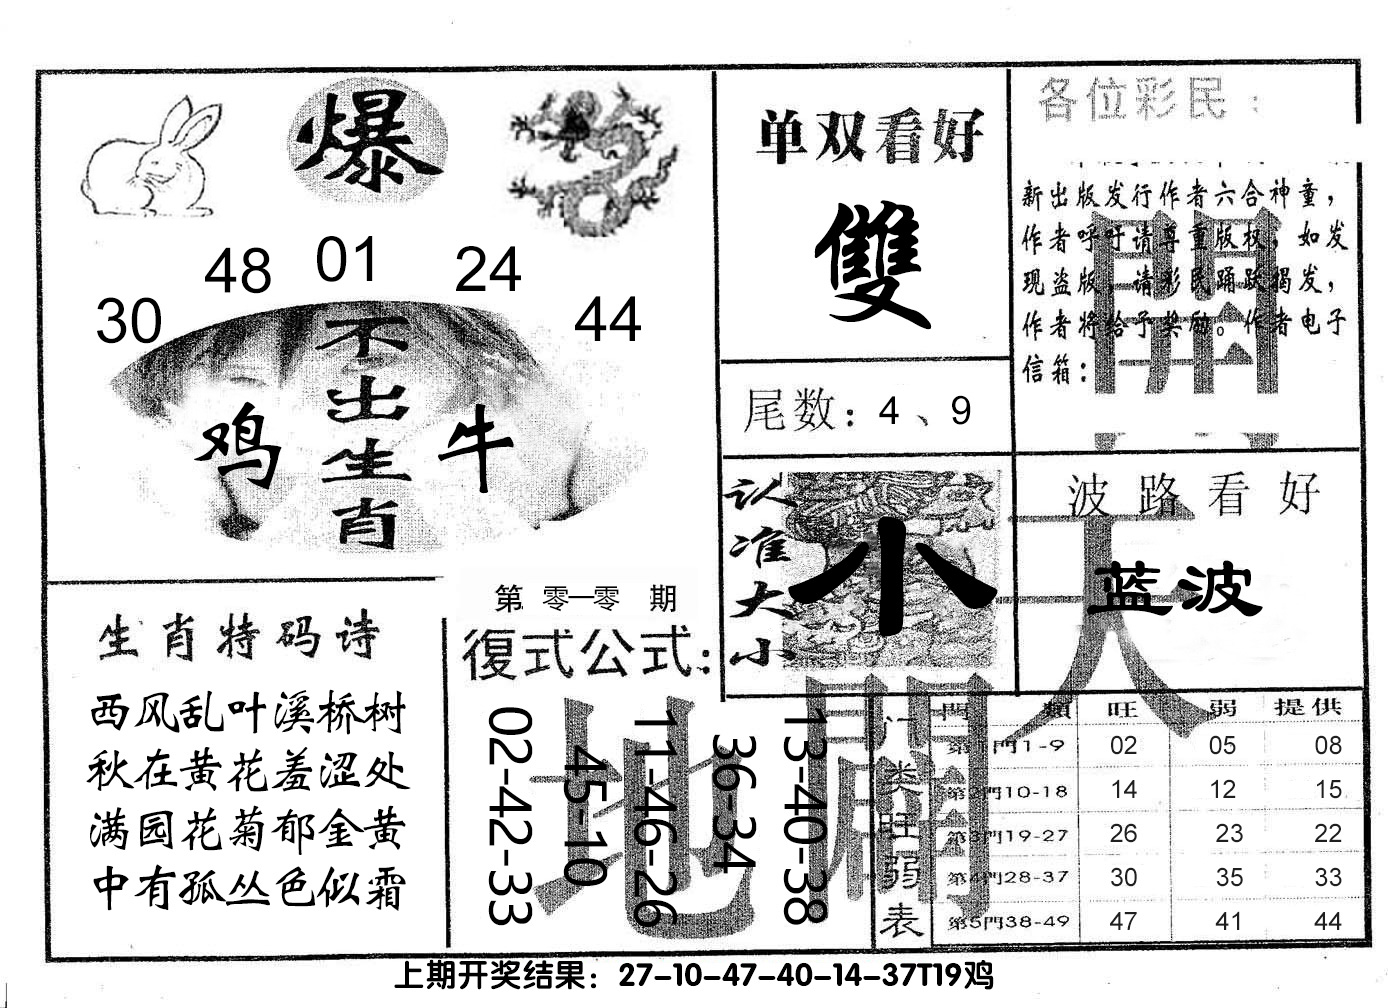 爆
30 48 01 24 44
不出生肖
鸡 牛
单双看好
雙
尾数：4、9
认准大小
小
各位彩民：
新出版发行作者六合神童，
作者呼吁请尊重版权，如发
现盗版，请彩民踊跃揭发，
作者将给予奖励。作者电子
信箱：
開
波路看好
蓝波
天
生肖特码诗
西风乱叶溪桥树
秋在黄花羞涩处
满园花菊郁金黄
中有孤丛色似霜
第 零一零 期
復式公式：
02-42-33
45-10
11-46-26
36-34
13-40-38
地開
门类旺弱表
門類 旺 弱 提供
第1門1-9 02 05 08
第2門10-18 14 12 15
第3門19-27 26 23 22
第4門28-37 30 35 33
第5門38-49 47 41 44
上期开奖结果：27-10-47-40-14-37T19鸡